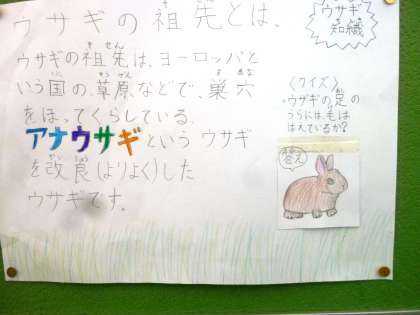 ウサギの祖先とは、
ウサギの祖先は、ヨーロッパと
いう国の、草原などで、巣穴
をほってくらしている、
アナウサギという ウサギ
を改良(よりよく)した
ウサギです。
ウサギ
知識
〈クイズ〉
ウサギの足の
うらには、毛は
はえているか?
答え